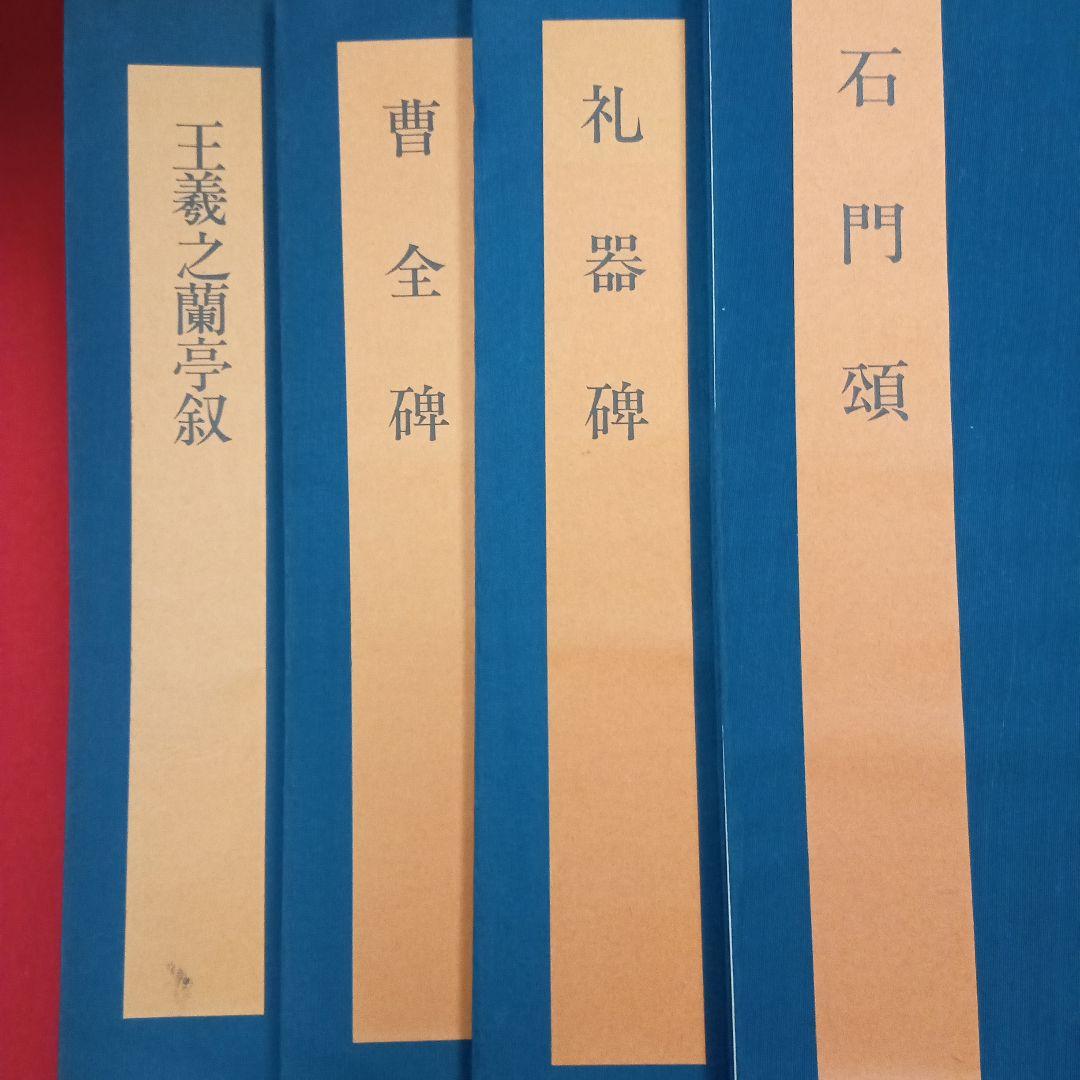 王羲之蘭亭叙
曹全碑
礼器碑
石門頌